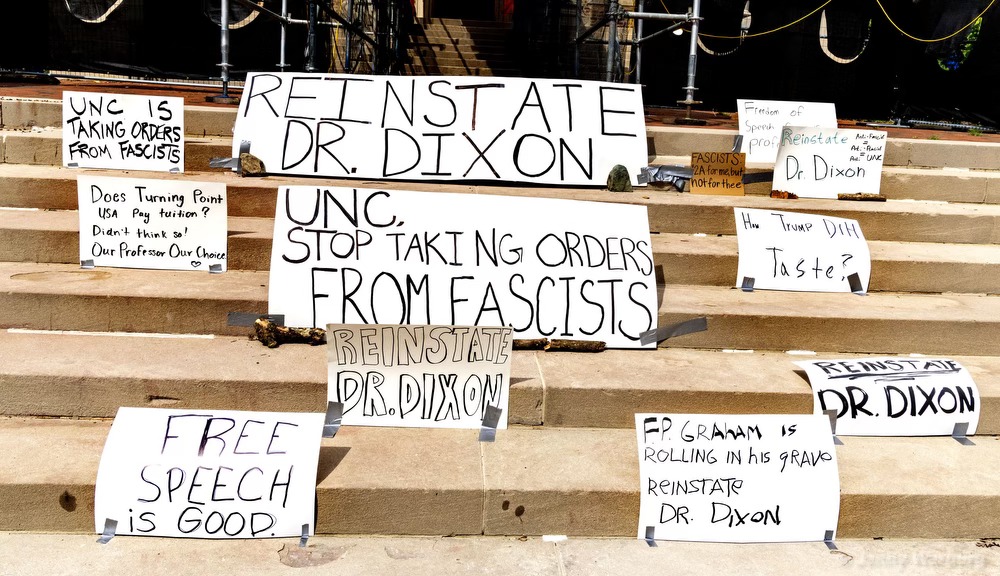 UNC IS
TAKING ORDERS
FROM FASCISTS
REINSTATE
DR. DIXON
Freedom of
Speech
Reinstate
Dr. Dixon
Anti-Fascist
=
FASCISTS:
2A for me, but
not for thee
Does Turning Point
USA Pay tuition?
Didn't think so!
Our Professor Our Choice
UNC,
STOP TAKING ORDERS
FROM FASCISTS
How TRUMP DIH
Taste?
REINSTATE
DR. DIXON
REINSTATE
DR. DIXON
FREE
SPEECH
is GOOD.
F.P. GRAHAM is
ROLLING IN his gRAVe
REINSTATE
DR. DIXON